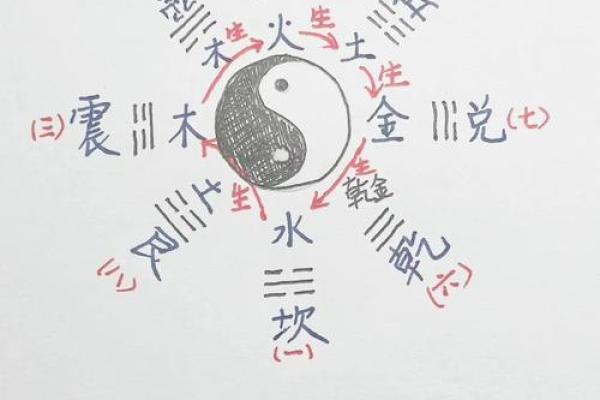 生 火 生
木 土
生
(三) 震 木 金 兑 (七)
生
土 生 乾金
水
艮 乾
(八) (六)
坎
(一)